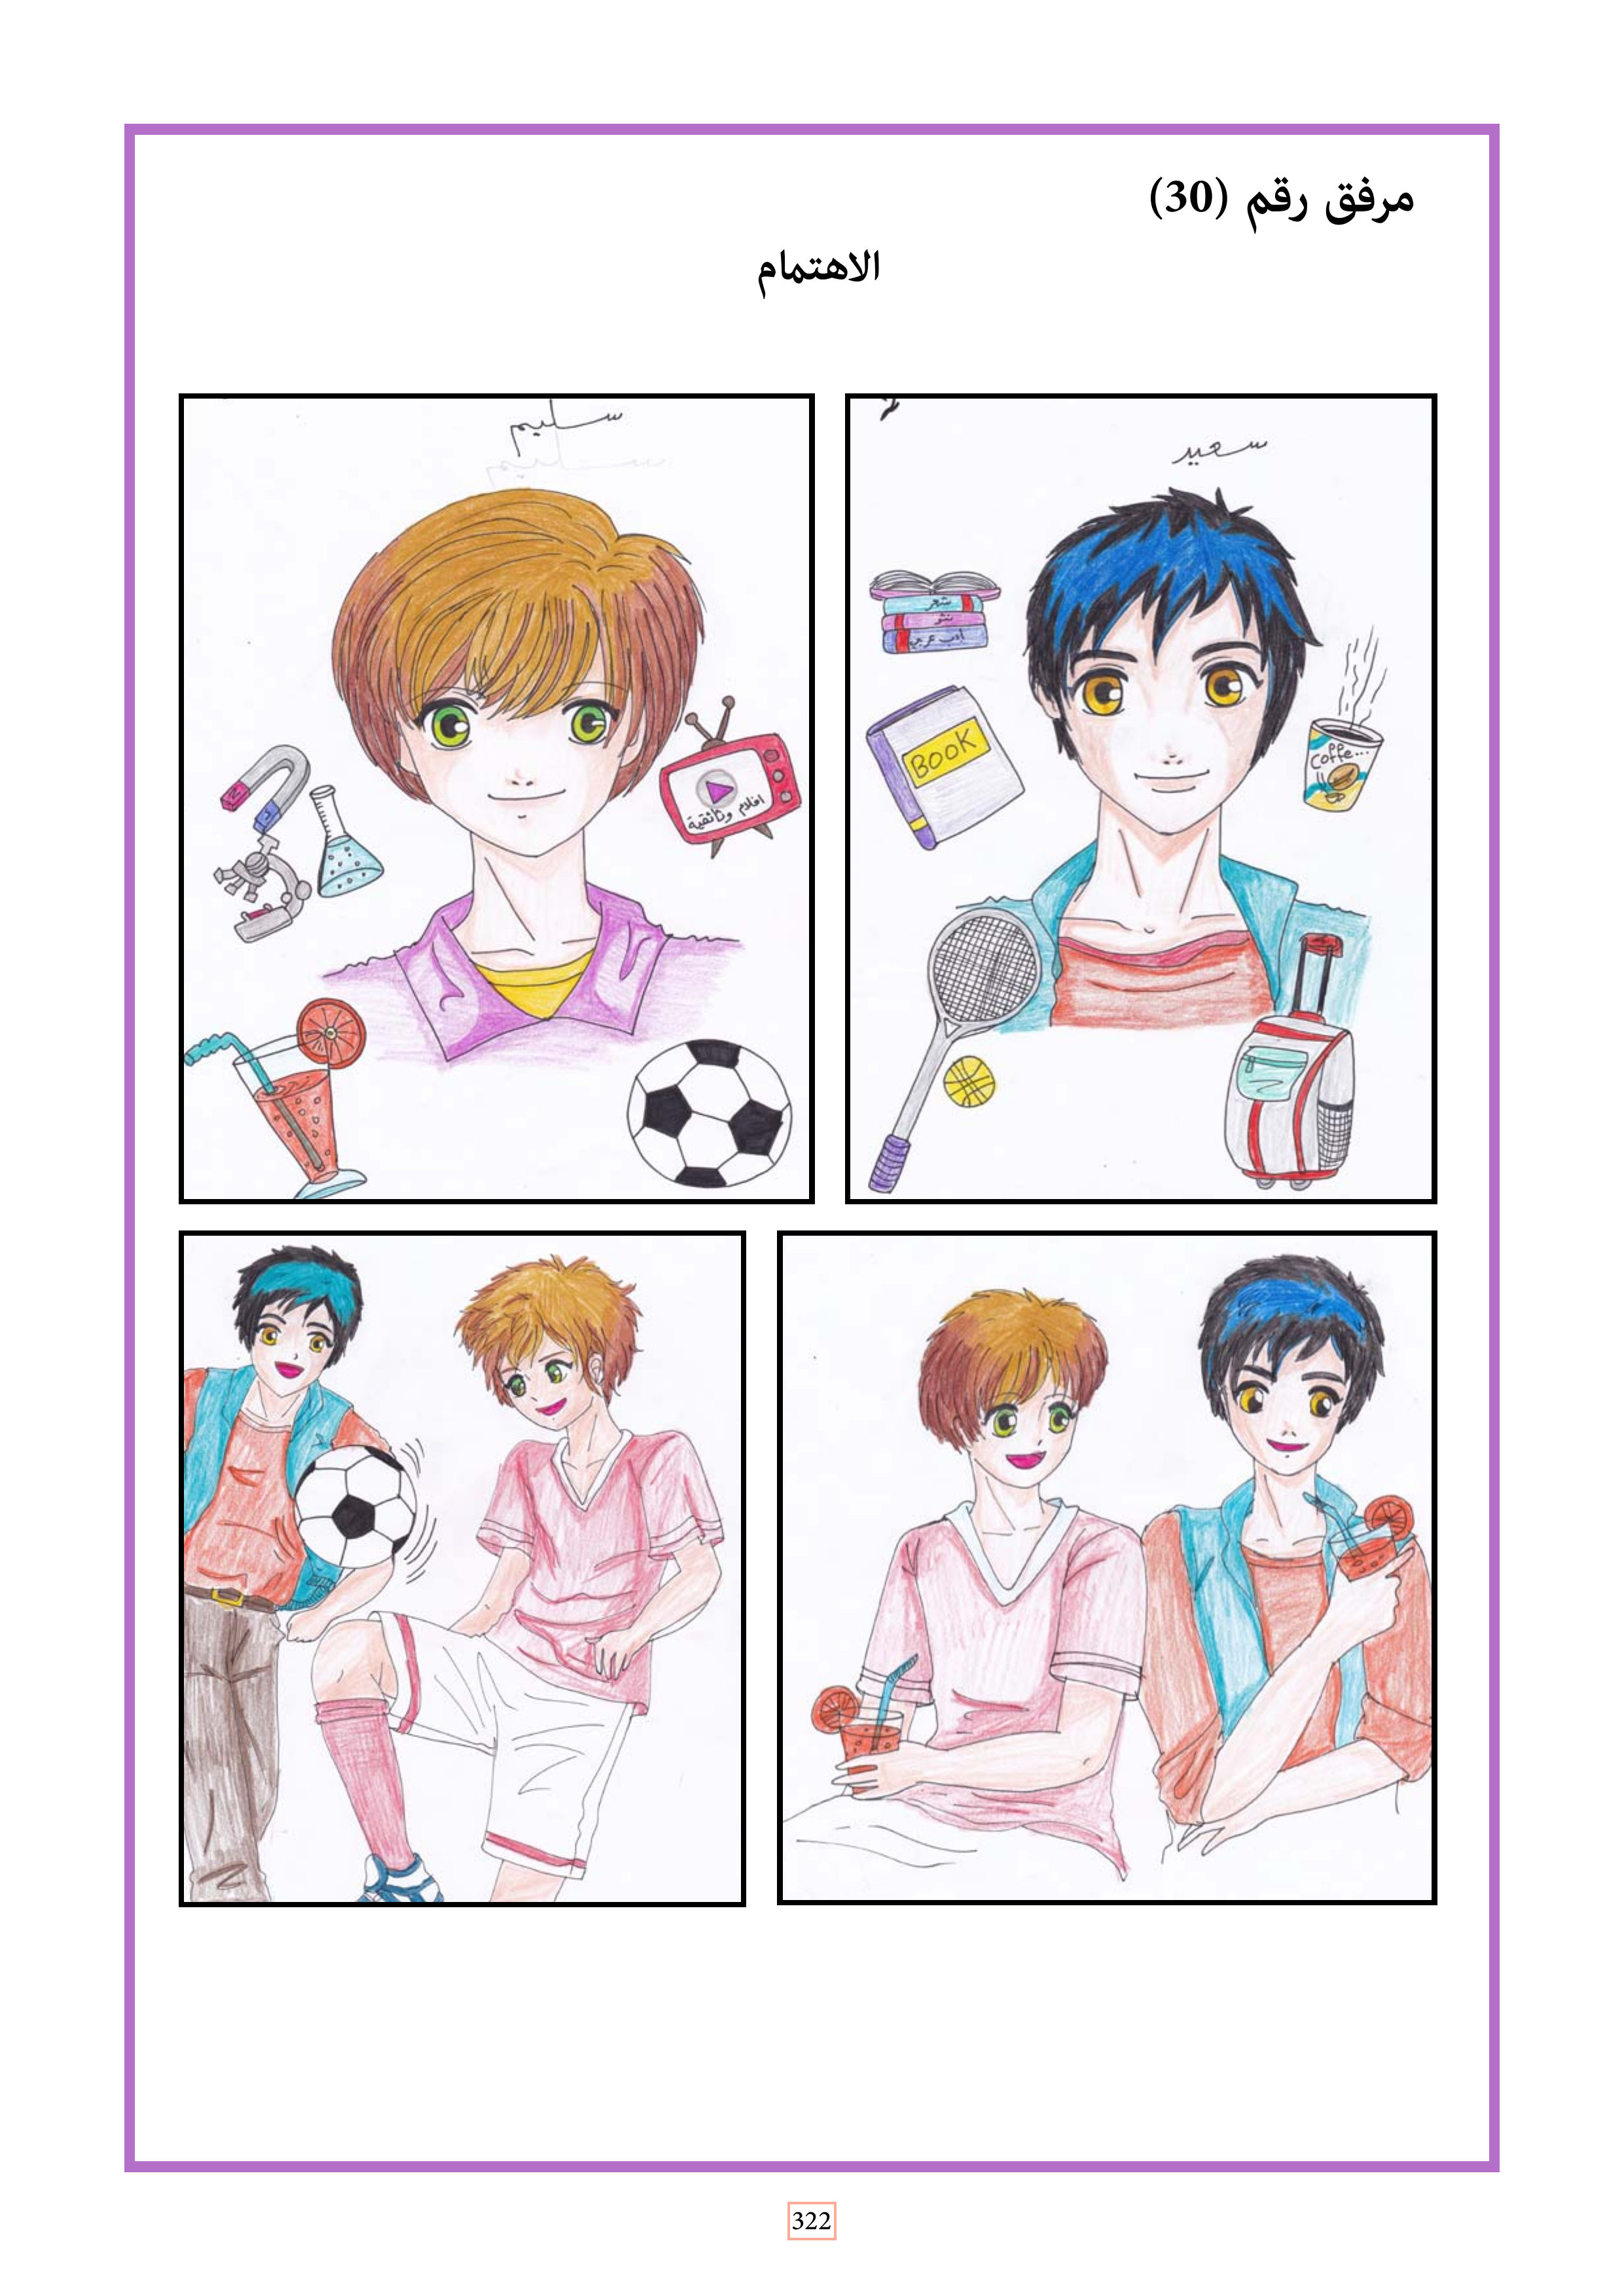 مرفق رقم (30)
الاهتمام
سعيد
شعر
نثر
أدب عربي
BOOK
Coffe...
سليم
سليم
N
افلام وثائقية
322